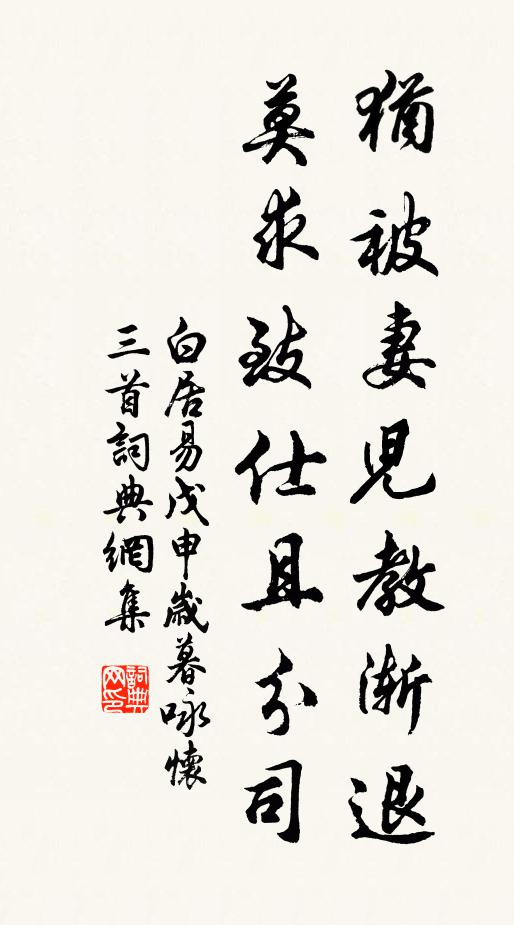 猶被妻兒教漸退
莫求致仕且分司
白居易戊申歲暮咏懷
三首詞典網集
詞典
网印